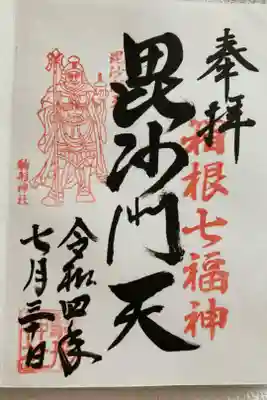 奉拝
箱根七福神
毘沙門天
毘沙
駒形神社
令和四年
七月三十日